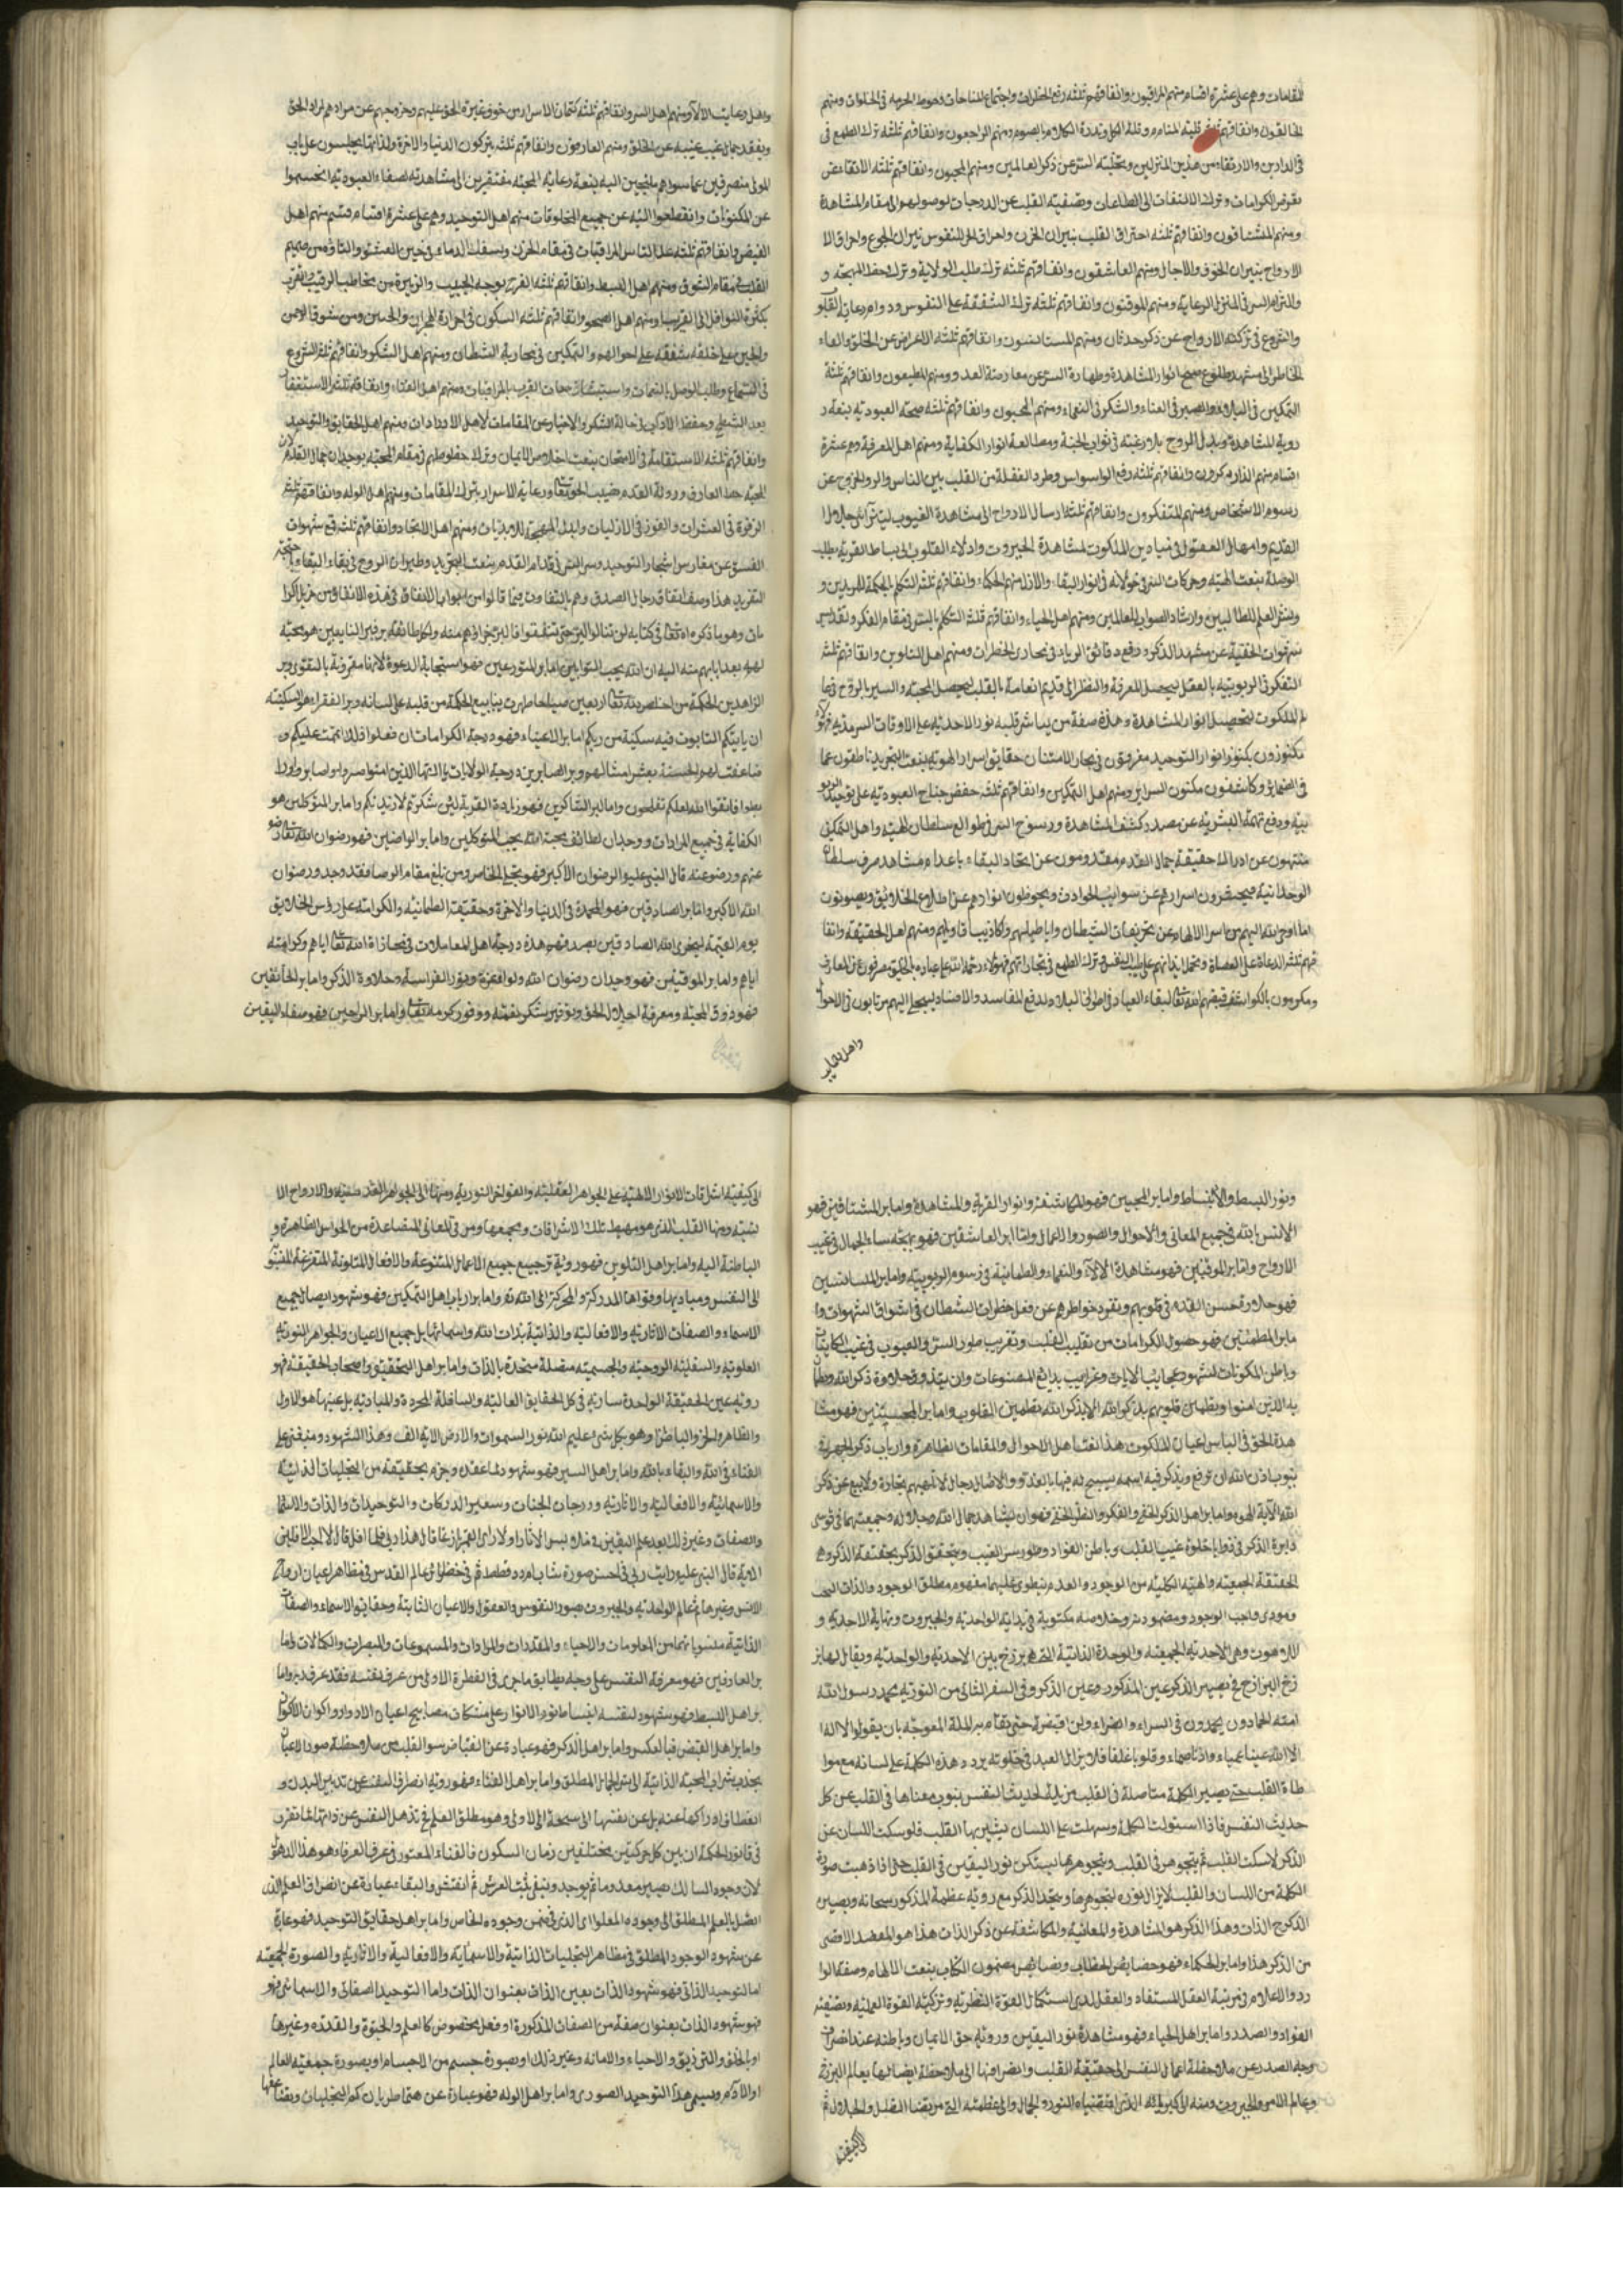 المقامات وهم على عشرة اقسام منهم المراقبون وانفاقهم ثلثه رفع الخطرات واجتماع المناجات وحوط الحرمه فى الخلوات ومنهم
الخائفون وانفاقهم قلة المنام وقلة الاكل وندرة الكلام والصوم ومنهم الراجعون وانفاقهم ثلثه ترك الطمع فى
فى الدارين والارتقاء من هذين المنزلين وتخليته السر عن ذكر العالمين ومنهم المحبون وانفاقهم ثلثه الانقاء عن
الكرامات وترك الالتفات الى الطاعات وتصفية القلب عن الدرجات لوصولهم الى مقام المشاهدة
ومنهم المشتاقون وانفاقهم ثلثه احتراق القلب بنيران الحزن واحراق النفوس نيران الجوع واحراق الا
الارواح بنيران الخوف والاجال ومنهم العاشقون وانفاقهم ثلثه ترك طلب الولاية وترك حفظ المهجة و
والتزام السر فى المنزل الرعاية ومنهم الموقنون وانفاقهم ثلثه ترك الشفقة على النفوس ودوام رعاية القلو
والشروع فى تزكية الارواح عن ذكر حدثان ومنهم المستانسون وانفاقهم ثلثه الاعراض عن الخلق والقاء
الخاطر الى مشهد طلوع صبح انوار المشاهدة وطهارة السر عن معارضة العدو ومنهم المطيعون وانفاقهم ثلثة
التمكين فى البلاء والصبر فى العناء والشكر فى النعماء ومنهم المحبون وانفاقهم ثلثه صحة العبودية بنعت
روية المشاهدة وبذل الروح بلا رغبته فى ثواب الجنة ومطالعة انوار الكفاية ومنهم اهل المعرفة وهم عشرة
اقسام منهم الذاكرون وانفاقهم ثلثه دفع الوسواس وطرد الغفلة من القلب بين الناس والخروج عن
رسوم الاشخاص ومنهم المتفكرون وانفاقهم ثلثه ارسال الارواح الى مشاهدة الغيوب
القديم وامهال العقول فى ميادين الملكوت لمشاهدة الجبروت وادلاء القلوب الى بساط القربة بطلب
الوصلة بنعت الهيبة وحركات السر فى جولانه فى انوار البقاء والازل منهم الحكماء وانفاقهم ثلثه التكلم بالحكمة للمريدين و
ونشر العلم للطالبين وارشاد الصواب للعالمين ومنهم اهل الحياء وانفاقهم ثلثه التكلم بالسر فى مقام الفكر وتقديس
شهوات الخفية عن مشهد الذكر ودفع دقائق الرياء فى مجارى الخطرات ومنهم اهل التلوين وانفاقهم ثلثه
التفكر فى الربوبية بالعقل ليحصل المعرفة والنظر الى قديم انعامه بالقلب ليحصل المحبة والسير بالروح فى
الملكوت لتحصيل انوار المشاهدة وهذه صفة من يباشر قلبه نور الاحدية على الاوقات السرمدية فهؤلاء
مكنوزون بكنوز انوار التوحيد مغرقون فى بحار الامتنان حقايق اسرار الهويه بنعت التجريد ناطقون عما
فى الضماير وكاشفون مكنون السراير ومنهم اهل التمكين وانفاقهم ثلثه خفض جناح العبوديه على توحيد الربو
بيه ودفع تهمة البشرية عن مصدر كشف المشاهدة ورسوخ السر فى طوالع سلطان الهيبة واهل التمكين
منتهون عن ادراك حقيقة جمال القدم مقدومون عن اتحاد البقاء باعدام مشاهد صرف سلطان
الوحدانية فيحضرون اسرارهم عن شوايب الحوادث ويحوطون انوارهم عن اطلاع الخلايق ويصونون
ما اوحى الله اليهم من اسرار الالهام عن تحريفات الشيطان واباطيلهم واكاذيب اقاويلهم ومنهم اهل الحقيقة وانفا
قهم ثلثه الدعاء على العصاة وتحمل ايذائهم على طيب النفس وترك الطمع فى مجازاتهم فهؤلاء رحمة الله على عباده
واهل رعايت
واهل رعايت الالآء ومنهم اهل السر وانفاقهم ثلثه كتمان الاسرار من خوف غيرة الحق عليهم وخروجهم عن مرادهم لمراد الحق
وبفقد جمال غيب غيبه عن الخلق ومنهم العارفون وانفاقهم ثلثه يتركون الدنيا والاخرة ولذاتها يجلسون على باب
المولى منصرفين عما سواه ملتجين اليه بنعة رعاية المحبة مفتقرين الى مشاهدته لصفاء العبودية انحسموا
عن المكنونات وانقطعوا اليه عن جميع المخلوقات منهم اهل التوحيد وهم على عشرة اقسام قسم منهم اهل
القبض وانفاقهم ثلثه على التماس المراقبات فى مقام الحزن وسفك الدماء فى حين العشق والتاوه من صميم
القلب فى مقام الشوق ومنهم اهل البسط وانفاقهم ثلثه الفرح بوجه الحبيب والزفرة من مخاطب الرقيب والتقرب
بكثرة النوافل الى القريب ومنهم اهل الصحو وانفاقهم ثلثه السكون فى حرارة الهجران والحنين ومن شوق الانس
على خلقه شفقة على احوالهم والتمكين فى محاربة الشيطان ومنهم اهل السكر وانفاقهم ثلثه الشروع
فى السماع وطلب الوصل بالنغمات واستنشاق نفحات القرب بالمراقبات ومنهم اهل الفناء وانفاقهم ثلثه الاستغفار
بعد الشطح وحفظ الاداب فى حالة السكر والاخبار عن المقامات لاهل الارادات ومنهم اهل الحقايق والتوحيد
وانفاقهم ثلثه الاستقامة فى الامتحان بنعت اخلاص الايمان وترك حظوظهم فى مقام المحبة بوجدان جمال القدم لان
المحبة حظ العارف ورعاية الاسرار بترك المقامات ومنهم اهل الوله وانفاقهم ثلثه
الزفرة فى العشرات والفوز فى الازليات وبذل المهجة للابديات ومنهم اهل الاتحاد وانفاقهم ثلثه قمع شهوات
الفسق عن مغارس اشجار التوحيد وسر السر فى قدام القدم بنعت التجريد وطيران الروح فى بقاء البقاء
التفريد هذا وصف انفاق رجال الصدق وهم بالتفاوت فيما قالوا من ابواب الانفاق فى هذه الانفاق من
وهو ما ذكره الله تعالى فى كتابه لن تنالوا البر حتى تنفقوا فالبر جزاؤهم منه ولكل طائفة بر فبر التايبين هو محبة
لهم بعد ايابهم منه اليه ان الله يحب التوابين اما بر المتورعين فهو استجابة الدعوة لانها مقرونة بالتقوى وبر
الزاهدين الحكمة من اخلص لله تعالى اربعين صباحا ظهرت ينابيع الحكمة من قلبه على لسانه وبر الفقراء هو السكينه
ان ياتيكم التابوت فيه سكينة من ربكم اما بر الاغنياء فهو درجة الكرامات
ضاعفت لهم الحسنة بعشر امثالها وبر الصابرين درجة الولايات يا ايها الذين امنوا اصبروا وصابروا ورا
بطوا واتقوا الله لعلكم تفلحون واما بر الشاكرين فهو زيادة القربة لئن شكرتم لازيدنكم واما بر المتوكلين هو
الكفاية فى جميع المرادات ووجدان لطائف محبة الله يحب المتوكلين واما بر الراضين فهو رضوان الله تعالى رضى
عنهم ورضوا عنه قال النبى عليه الرضوان الاكبر فهو تجلى الخاص ومن بلغ مقام الرضا فقد وجد ورضوان
الله الاكبر واما بر الصادقين فهو المحمدة فى الدنيا والاخرة وحقيقة الطمانية والكرامة على رؤس الخلايق
يوم القيمة ليجزى الله الصادقين بصدقهم هذه درجة اهل المعاملات فى مجازاة الله تعالى اياهم وكرامته
اياهم واما بر الموقنين فهو وجدان رضوان الله ونور الفراسة وحلاوة الذكر واما بر الخائفين
فهو ذوق المحبة ومعرفة اجلال الحق وتوفير شكر نعمته ووفور كرمه تعالى واما بر الراجين فهو صفاء اليقين
ونور البسط والانبساط واما بر المحبين فهو المكاشفة وانوار القربة والمشاهدة واما بر المشتاقين فهو
الانس بالله فى جميع المعانى والاحوال والصور والاعمال واما بر العاشقين فهو بهجة سناء الجمال فى غيب
الارواح واما بر الموقنين فهو مشاهدة الالآء والنعماء والطمانية فى رسوم الربوبية واما بر المستانسين
فهو حلاوة حسن القدم فى قلوبهم ونفود خواطرهم عن فعل خطرات الشيطان فى اشواق الشهوات وا
ما بر المطمئنين فهو حصول الكرامات من تقليب القلب وتقريب طور السر والغيوب فى غيب الكاينات
وباطن المكونات لشهود عجايب الايات وغرايب بدائع المصنوعات وان يتذوق حلاوة ذكر الله
الذين امنوا وتطمئن قلوبهم بذكر الله الا بذكر الله تطمئن القلوب واما بر المحسنين فهو مشا
هدة الحق فى الباس اعيان الملكوت هذا نعت اهل الاحوال والمقامات الظاهرة وارباب ذكر الجهرية
بيوت اذن الله ان ترفع ويذكر فيه اسمه يسبح له فيها بالغدو والاصال رجال لا تلهيهم تجارة ولا بيع عن ذكر
الله الآية واما بر اهل الذكر الخفى والفكر والنظر الخفى فهو ان يشاهد جمال الله جلاله وجمعيتهما فى قوسى
دايرة الذكر فى زوايا خلوة غيب القلب وباطن الفؤاد وطور سر الغيب ويتحقق الذكر بحقيقة الذكر وهى
الحقيقة الجمعية والهيئة الكلية من الوجود والعدم ينطوى عليهما مفهوم مطلق الوجود والذات البحت
ومودى واجب الوجود ومضمونه وخلاصه مكتوبة فى بداية الواحدية والجبروت ونهاية الاحدية و
اللاهوت وهى الاحدية الجمعية والوحدة الذاتية التى هى برزخ بين الاحدية والواحدية ويقال لها بر
زخ البرازخ فح يصير الذكر عين المذكور وعين الذكر وفى السفر الثانى من التورية محمد رسول الله
امته الحامدون يحمدون فى السراء والضراء ولن اقبضه حتى تقام به الملة المعوجة بان يقولوا لا اله ا
لا الله عينا عمياء واذانا صماء وقلوبا غلفا فلا يزال العبد فى خلوته يردد هذه الكلمة على لسانه مع موا
طاة القلب حتى يصير الكلمة متاصلة فى القلب مزيلة لحديث النفس ينوب معناها فى القلب عن كل
حديث النفس فاذا استولت الكلمة وسهلت على اللسان يتشربها القلب فلو سكت اللسان عن
الذكر لا يسكت القلب ثم يتجوهر فى القلب وبتجوهرها يستكن نور اليقين فى القلب حتى اذا ذهبت صورة
الكلمة من اللسان والقلب لايزال نوره بتجوهرها ويتحد الذكر مع روية عظمة المذكور سبحانه ويصير
الذكر ح الذات وهذا الذكر هو المشاهدة والمعاينة والمكاشفة عن ذكر الذات هذا هو المقصد الاقصى
من الذكر هذا واما بر الحكماء فهو خصايص الخطاب وبصائص مضمون الكتاب بنعت الالهام وصفة الوا
رد والاعلام فى مرتبة العقل المستفاد والعقل لدى استكمال القوة النظرية وتزكية القوة العملية وتصفية
الفؤاد والصدر واما بر اهل الحياء فهو مشاهدة نور اليقين وروية حق الايمان وباطنه عند انصراف
وجه الصدر عن ملاحظة اعمال النفس الى حقيقة القلب وانصرافها الى ملاحظة ايصالها بعالم العزة
الى كيفية
الى كيفية اشراقات الانوار الالهية على الجواهر العقلية والغواشى النورية ومنها الى الجواهر القدسية والارواح الا
نسية ومنها القلب الذى هو مهبط تلك الاشراقات ومجمعها ومرقى المعانى المتصاعدة من الحواس الظاهرة و
الباطنة اليه واما بر اهل التلوين فهو روية ترجيع جميع الاعمال المتنوعة والافعال المتلونة المتفرغة المنسو
الى النفس ومباديها وقواها المدركة والمحركة الى الله ته واما بر ارباب اهل التمكين فهو شهود ايصال جميع
الاسماء والصفات الآثارية والافعالية والذاتية بذات الله واسمائها بل جميع الاعيان والجواهر النورية
العلوية والسفلية الروحية والجسمية متصلة متحدة بالذات واما بر اهل التحقيق واصحاب الحقيقة فهو
روية عين الحقيقة الواحدة سارية فى كل الحقايق العالية والسافلة المجردة والمادية بل عينها هو الاول
والظاهر والاخر والباطن وهو بكل شىء عليم الله نور السموات والارض الاية الف وهذا الشهود ومنبغى على
الفناء فى الله والبقاء بالله واما بر اهل السير فهو شهود ما عقد وجزم بحقيقته من التجليات الذاتية
والاسمائية والافعالية والآثارية ودرجات الجنات وسعير الدركات والتوحيدات والذات والاسما
والصفات وغير ذلك بعد علم اليقين فى ملابس الآثار اولا رأى القمر بازغا قال هذا ربى فلما افل قال لا احب الافلين
الاية قال النبى عليه رايت ربى فى احسن صورة شاب امرد قطط ثم فى حظائر عالم القدس فى مظاهر اعيان ارواح
الانس وغيرها ثم عالم الواحدية والجبروت بصور النفوس والعقول والاعيان الثابتة وحقايق الاسماء والصفات
الذاتية منسوباتها من المعلومات والاحياء والمقدرات والمرادات والمسموعات والمبصرات والكمالات واما
بر العارفين فهو معرفة النفس على وجه يطابق ما جرى فى الفطرة الاولى من عرف نفسه فقد عرف ربه واما
بر اهل البسط فهو شهود لنفسه انبساط نور الانوار على مشكات مصابيح اعيان الادوار واكوان الاكوار
واما بر اهل القبض فبالعكس واما بر اهل الذكر فهو عبارة عن انقباض سر القلب من ملاحظة صور الاعيان
بجذب شراب المحبة الذاتية الى سر الجمال المطلق واما بر اهل الفناء فهو روية انصراف النفس عن تدبير البدن و
انعطاف ادراكها عنه بل عن نفسها الى سنخه الاولى وهو مطلق العلم فح تذهل النفس عن ذاتها لما تقرر
فى قانون الحكمة ان بين كل حركتين مختلفتين زمان السكون فالفناء المعتور فى عرف العرفاء هو هذا الذهول
لان وجود السالك يصير معدوما ثم يوجد وينبغى ثبت العرش ثم انقش والبقاء عبارة عن انصراف العلم
المتصل بالعلم المطلق الى وجوده المعلول الذى فى ضمن وجوده الخاص واما بر اهل حقايق التوحيد فهو عبارة
عن شهود الوجود المطلق فى مظاهر التجليات الذاتية والاسمائية والافعالية والآثارية والصورة الجمعية
اما التوحيد الذاتى فهو شهود الذات بعين الذات بعنوان الذات واما التوحيد الصفاتى والاسمائى فهو
فهو شهود الذات بعنوان صفة من الصفات المذكورة او فعل مخصوص كالعلم والحيوة والقدرة وغيرها
او بالخلق والترزيق والاحياء والاماتة وغير ذلك او بصورة جسم من الاجسام او بصورة جمعية العالم
او الادم ويسمى هذا التوحيد الصورى واما بر اهل الوله فهو عبارة عن هتماطريان كم التجليات وبقتا